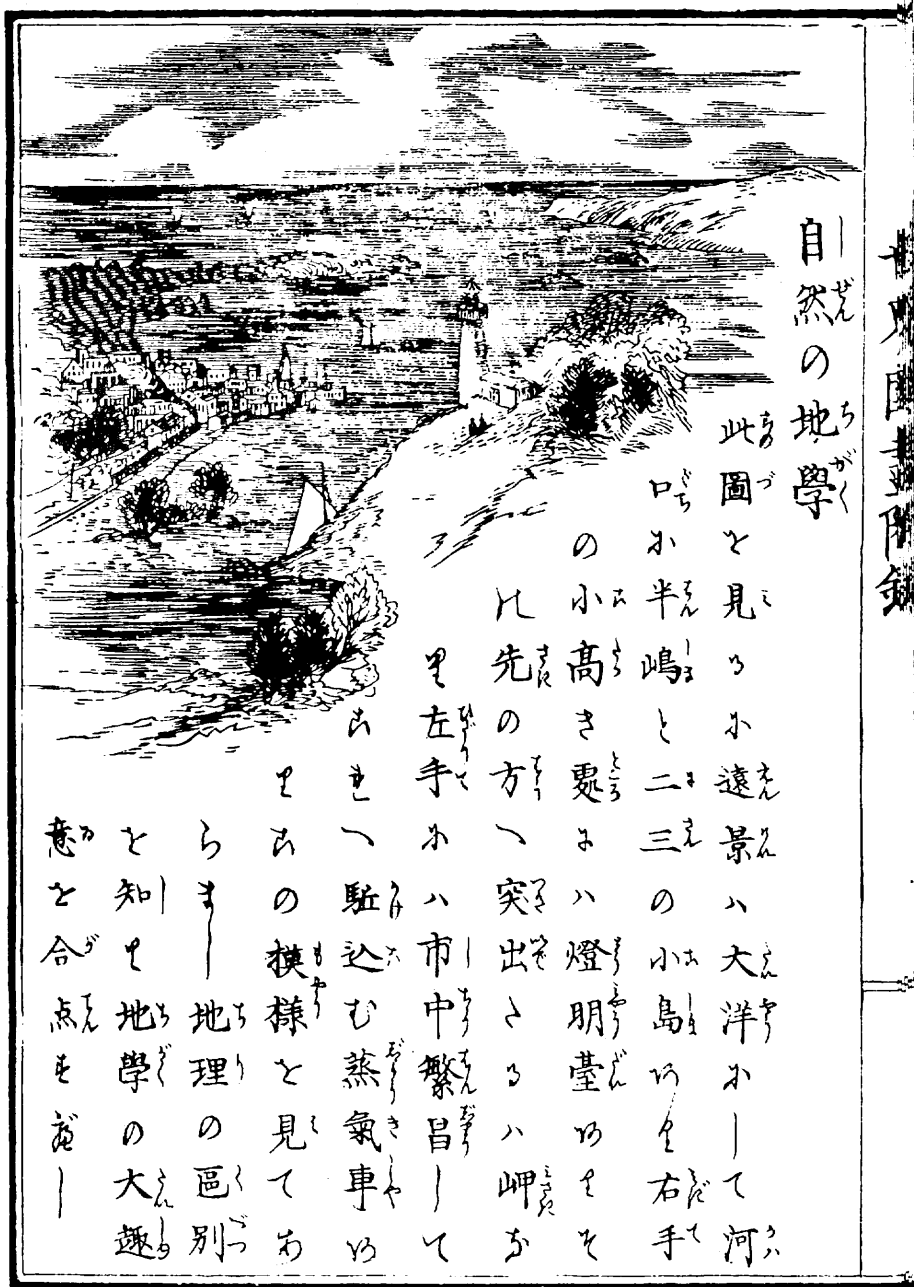 自然の地學
此圖を見るに遠景ハ大洋にして河
口に半嶋と二三の小島あり右手
の小高き處にハ燈明臺ありそ
の先の方へ突出たるハ岬な
り左手にハ市中繁昌して
これへ駈込む蒸氣車あ
りこの模様を見てあ
らまし地理の區別
を知り地學の大趣
意を合点すべし